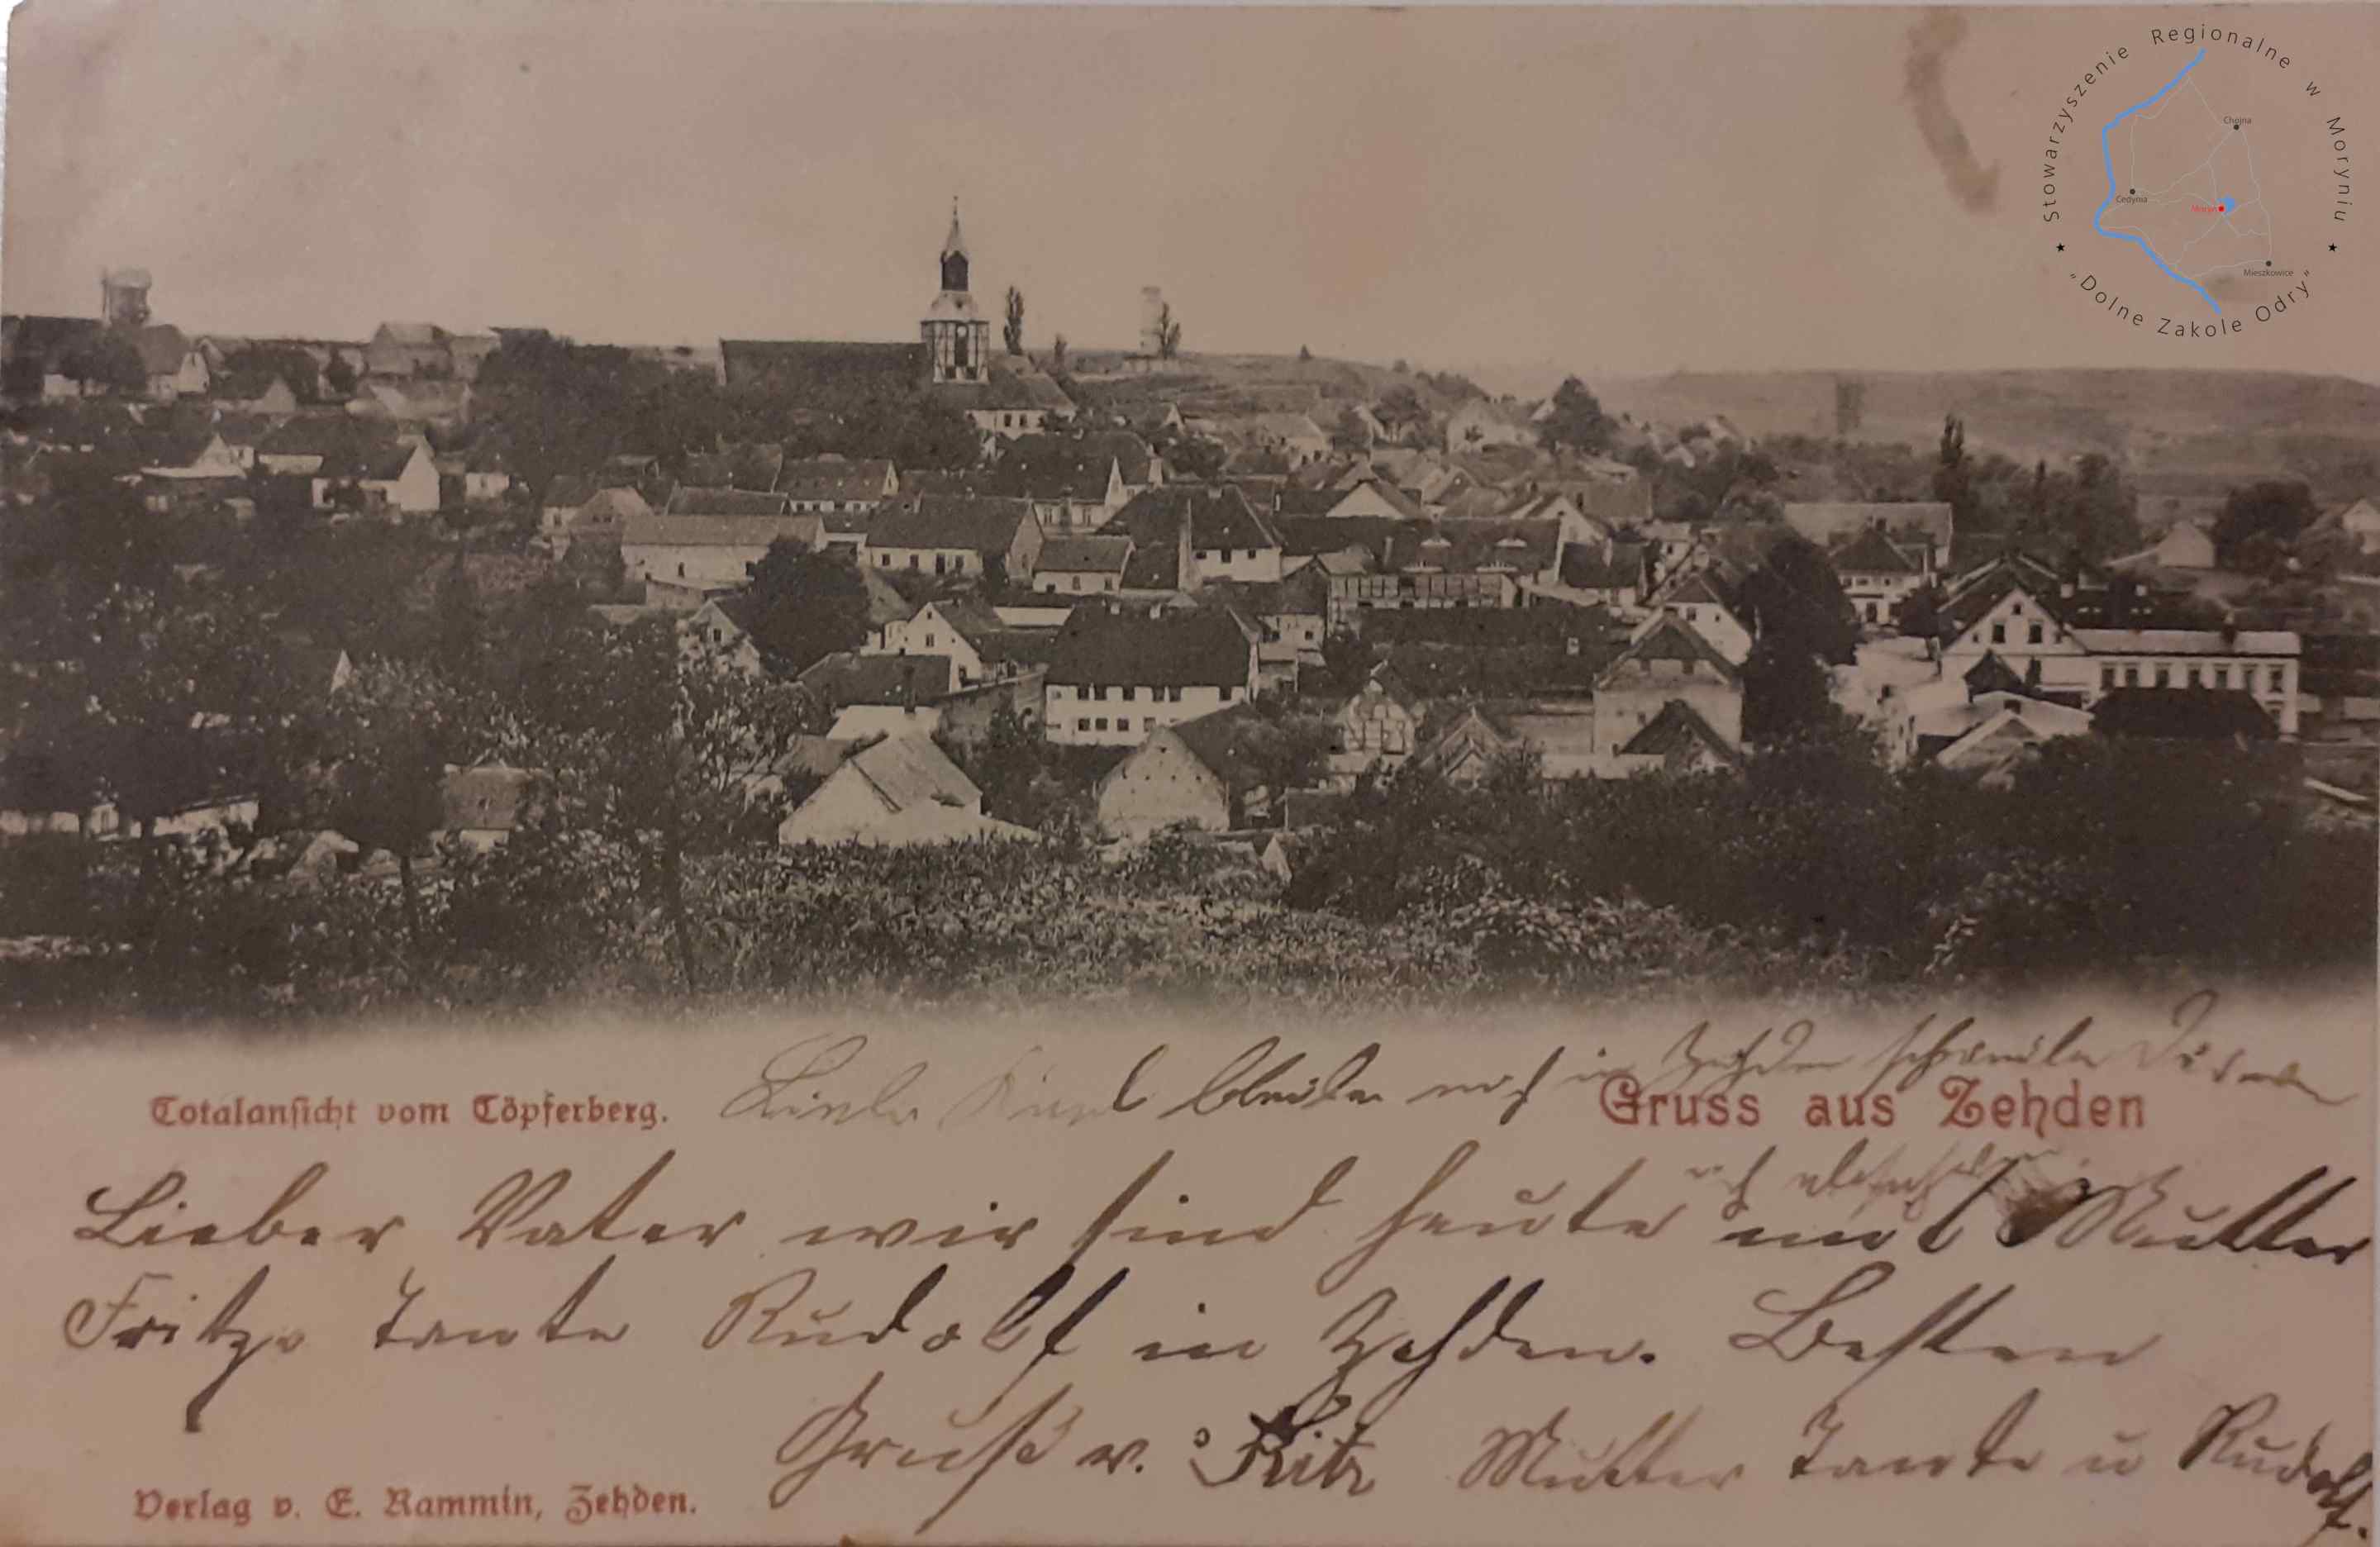 Stowarzyszenie Regionalne w Moryniu
Chojna
Cedynia
Moryń
Mieszkowice
"Dolne Zakole Odry"
bleiben in Zehden
Totalansicht vom Töpferberg.
Gruss aus Zehden
Lieber Vater wir sind heute mit Mutter
Fritze Tante Rudolf in Zehden. Besten
Gruß v. Fritz Mutter Tante u Rudolf.
Verlag v. E. Rammin, Zehden.